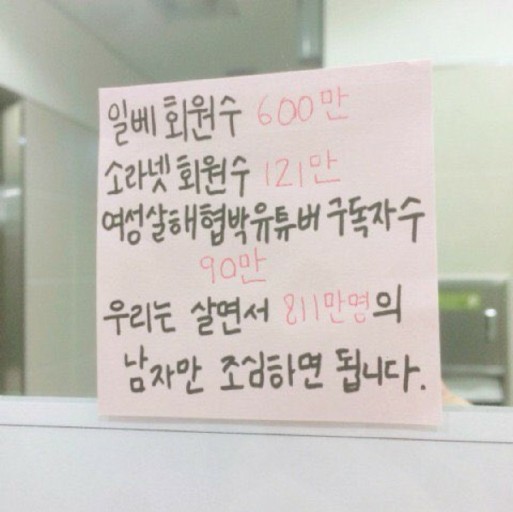 일베 회원수 600만
소라넷 회원수 121만
여성살해협박유튜버 구독자수
90만
우리는 살면서 811만명의
남자만 조심하면 됩니다.